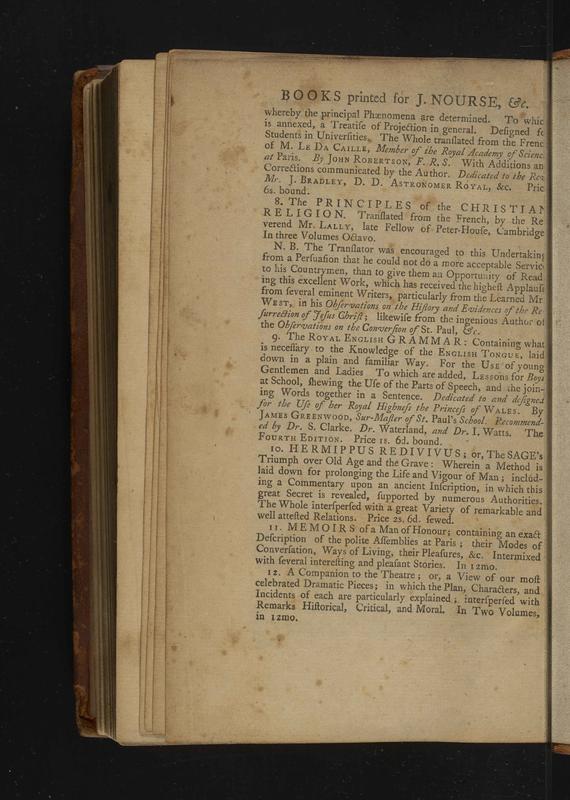 BOOKS printed for J. NOURSE, &c.
whereby the principal Phænomena are determined. To whic
is annexed, a Treatiſe of Projection in general. Deſigned fo
Students in Univerſities. The Whole tranſlated from the Frenc
of M. LE DA CAILLE, Member of the Royal Academy of Scienc
at Paris. By JOHN ROBERTSON, F. R. S. With Additions an
Corrections communicated by the Author. Dedicated to the Rev
Mr. J. BRADLEY, D. D. ASTRONOMER ROYAL, &c. Pric
6s. bound.
8. The PRINCIPLES of the CHRISTIAN
RELIGION. Tranſlated from the French, by the Re
verend Mr. LALLY, late Fellow of Peter-Houſe, Cambridge
In three Volumes Octavo.
N. B. The Tranſlator was encouraged to this Undertaking
from a Perſuaſion that he could not do a more acceptable Servic
to his Countrymen, than to give them an Opportunity of Read
ing this excellent Work, which has received the higheſt Applauſe
from ſeveral eminent Writers, particularly from the Learned Mr
WEST, in his Obſervations on the Hiſtory and Evidences of the Re
ſurrection of Jeſus Chriſt; likewiſe from the ingenious Author of
the Obſervations on the Converſion of St. Paul, &c.
9. The ROYAL ENGLISH GRAMMAR: Containing what
is neceſſary to the Knowledge of the ENGLISH TONGUE, laid
down in a plain and familiar Way. For the USE of young
Gentlemen and Ladies To which are added, LESSONS for Boys
at School, ſhewing the Uſe of the Parts of Speech, and the join-
ing Words together in a Sentence. Dedicated to and deſigned
for the Uſe of her Royal Highneſs the Princeſs of WALES. By
JAMES GREENWOOD, Sur-Maſter of St. Paul's School. Recommend-
ed by Dr. S. Clarke. Dr. Waterland, and Dr. I. Watts. The
FOURTH EDITION. Price 1s. 6d. bound.
10. HERMIPPUS REDIVIVUS; or, The SAGE's
Triumph over Old Age and the Grave: Wherein a Method is
laid down for prolonging the Life and Vigour of Man; includ-
ing a Commentary upon an ancient Inſcription, in which this
great Secret is revealed, ſupported by numerous Authorities.
The Whole interſperſed with a great Variety of remarkable and
well atteſted Relations. Price 2s. 6d. ſewed.
11. MEMOIRS of a Man of Honour; containing an exact
Deſcription of the polite Aſſemblies at Paris; their Modes of
Converſation, Ways of Living, their Pleaſures, &c. Intermixed
with ſeveral intereſting and pleaſant Stories. In 12mo.
12. A Companion to the Theatre; or, a View of our moſt
celebrated Dramatic Pieces; in which the Plan, Characters, and
Incidents of each are particularly explained; interſperſed with
Remarks Hiſtorical, Critical, and Moral. In Two Volumes,
in 12mo.